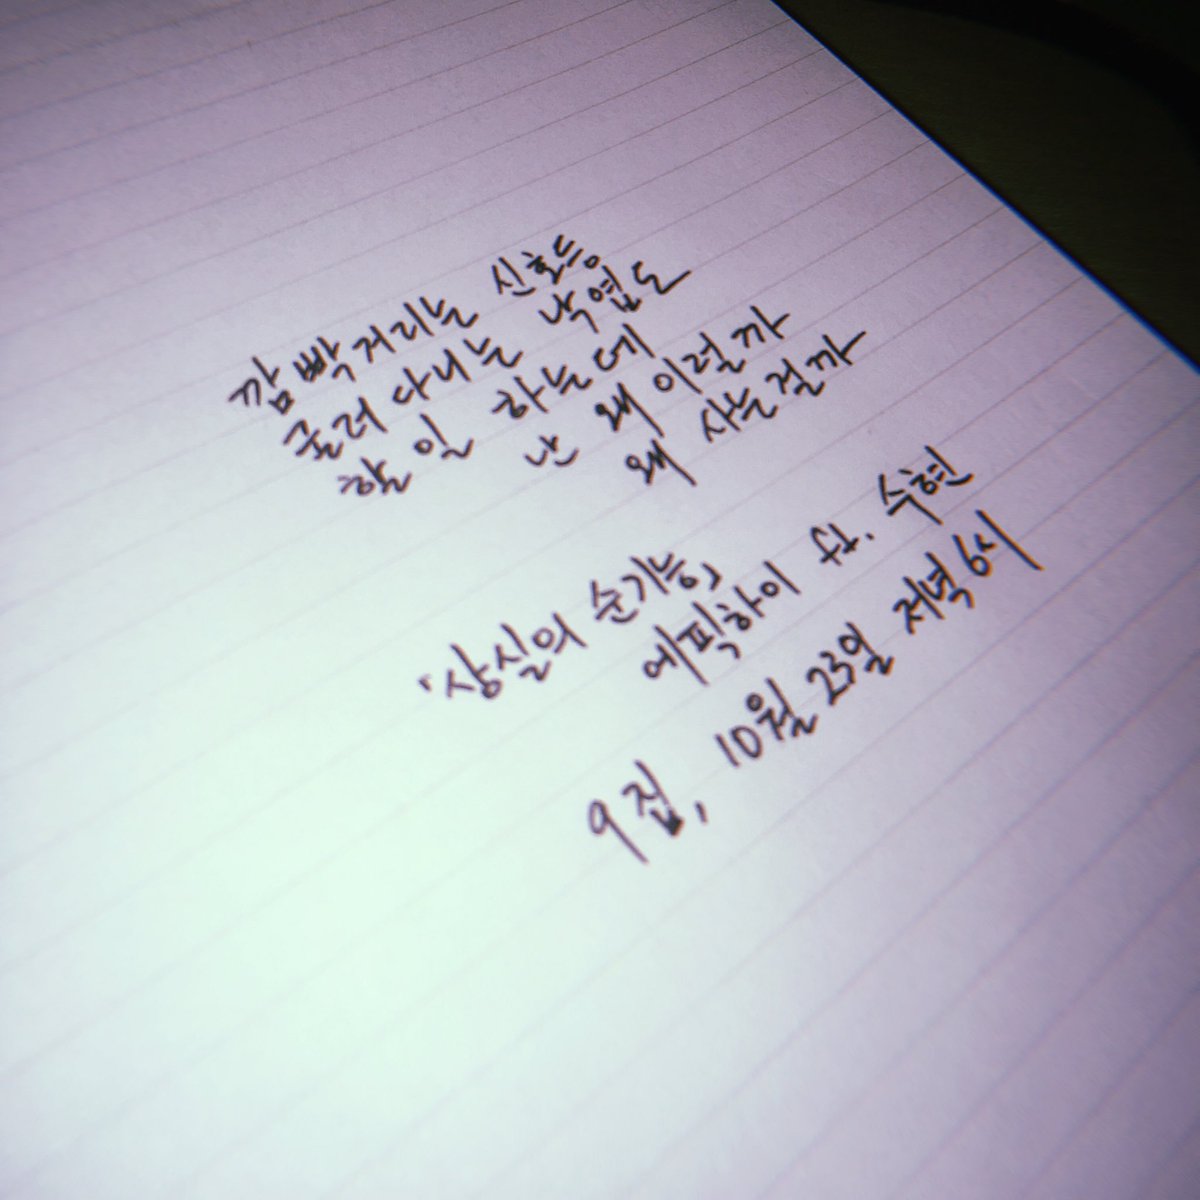 깜빡거리는 신호등
굴러 다니는 낙엽도
할 일 하는데
난 왜 이럴까
왜 사는걸까
'상실의 순기능'
에픽하이 ft. 수현
9집, 10월 23일 저녁 6시